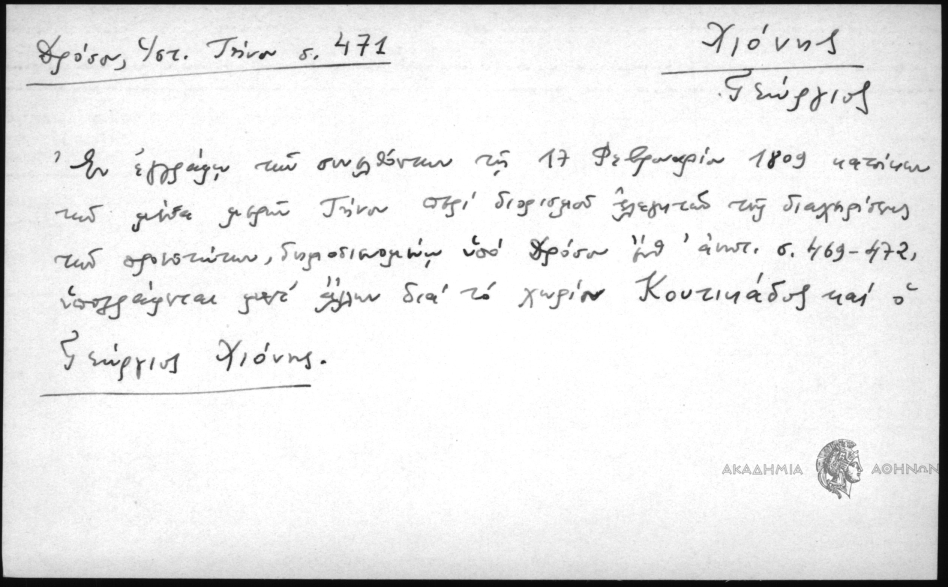 Δρόσου, Ἱστ. Τήνου σ. 471
Χιόνης
Γεώργιος
Ἐν ἐγγράφῳ τῶν συνελθόντων τῇ 17 Φεβρουαρίου 1809 κατοίκων
τῶν μέσα μερῶν Τήνου περί διορισμοῦ ἐλεγκτῶν τῆς διαχειρίσεως
τῶν προεστώτων, δημοσιευομένῳ ὑπό Δρόσου ἔνθ' ἀνωτ. σ. 469-472,
ὑπογράφεται μετ' ἄλλων διά τό χωρίον Κουτικάδος καί ὁ
Γεώργιος Χιόνης.
ΑΚΑΔΗΜΙΑ ΑΘΗΝΩΝ